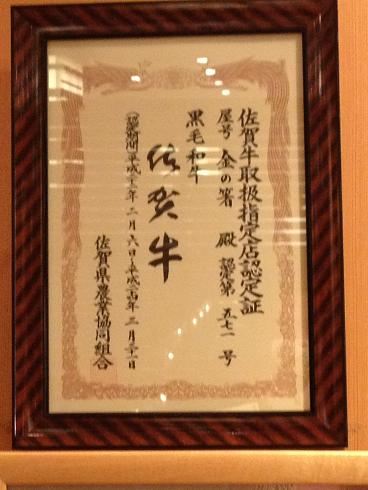 佐賀牛取扱指定店認定証
屋号 金の箸 殿 認定第 五七一 号
黒毛和牛
佐賀牛
(認定期間 平成二十三年 二月 六日～平成二十四年 三月三十一日
佐賀県農業協同組合